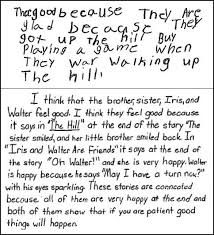 Thea good because They Are
glad because They
got up the hill Buy
Playing a game when
They war walking up
The hill.
I think that the brother, sister, Iris, and
Walter feel good. I think they feel good because
it says in "The Hill" at the end of the story "The
sister smiled, and her little brother smiled back. In
"Iris and Walter Are Friends" it says at the end of
the story "Oh Walter!" and she is very happy. Walter is
happy because he says "May I have a turn now?"
with his eyes sparkling. These stories are connected
because all of them are very happy at the end and
both of them show that if you are patient good
things will happen.